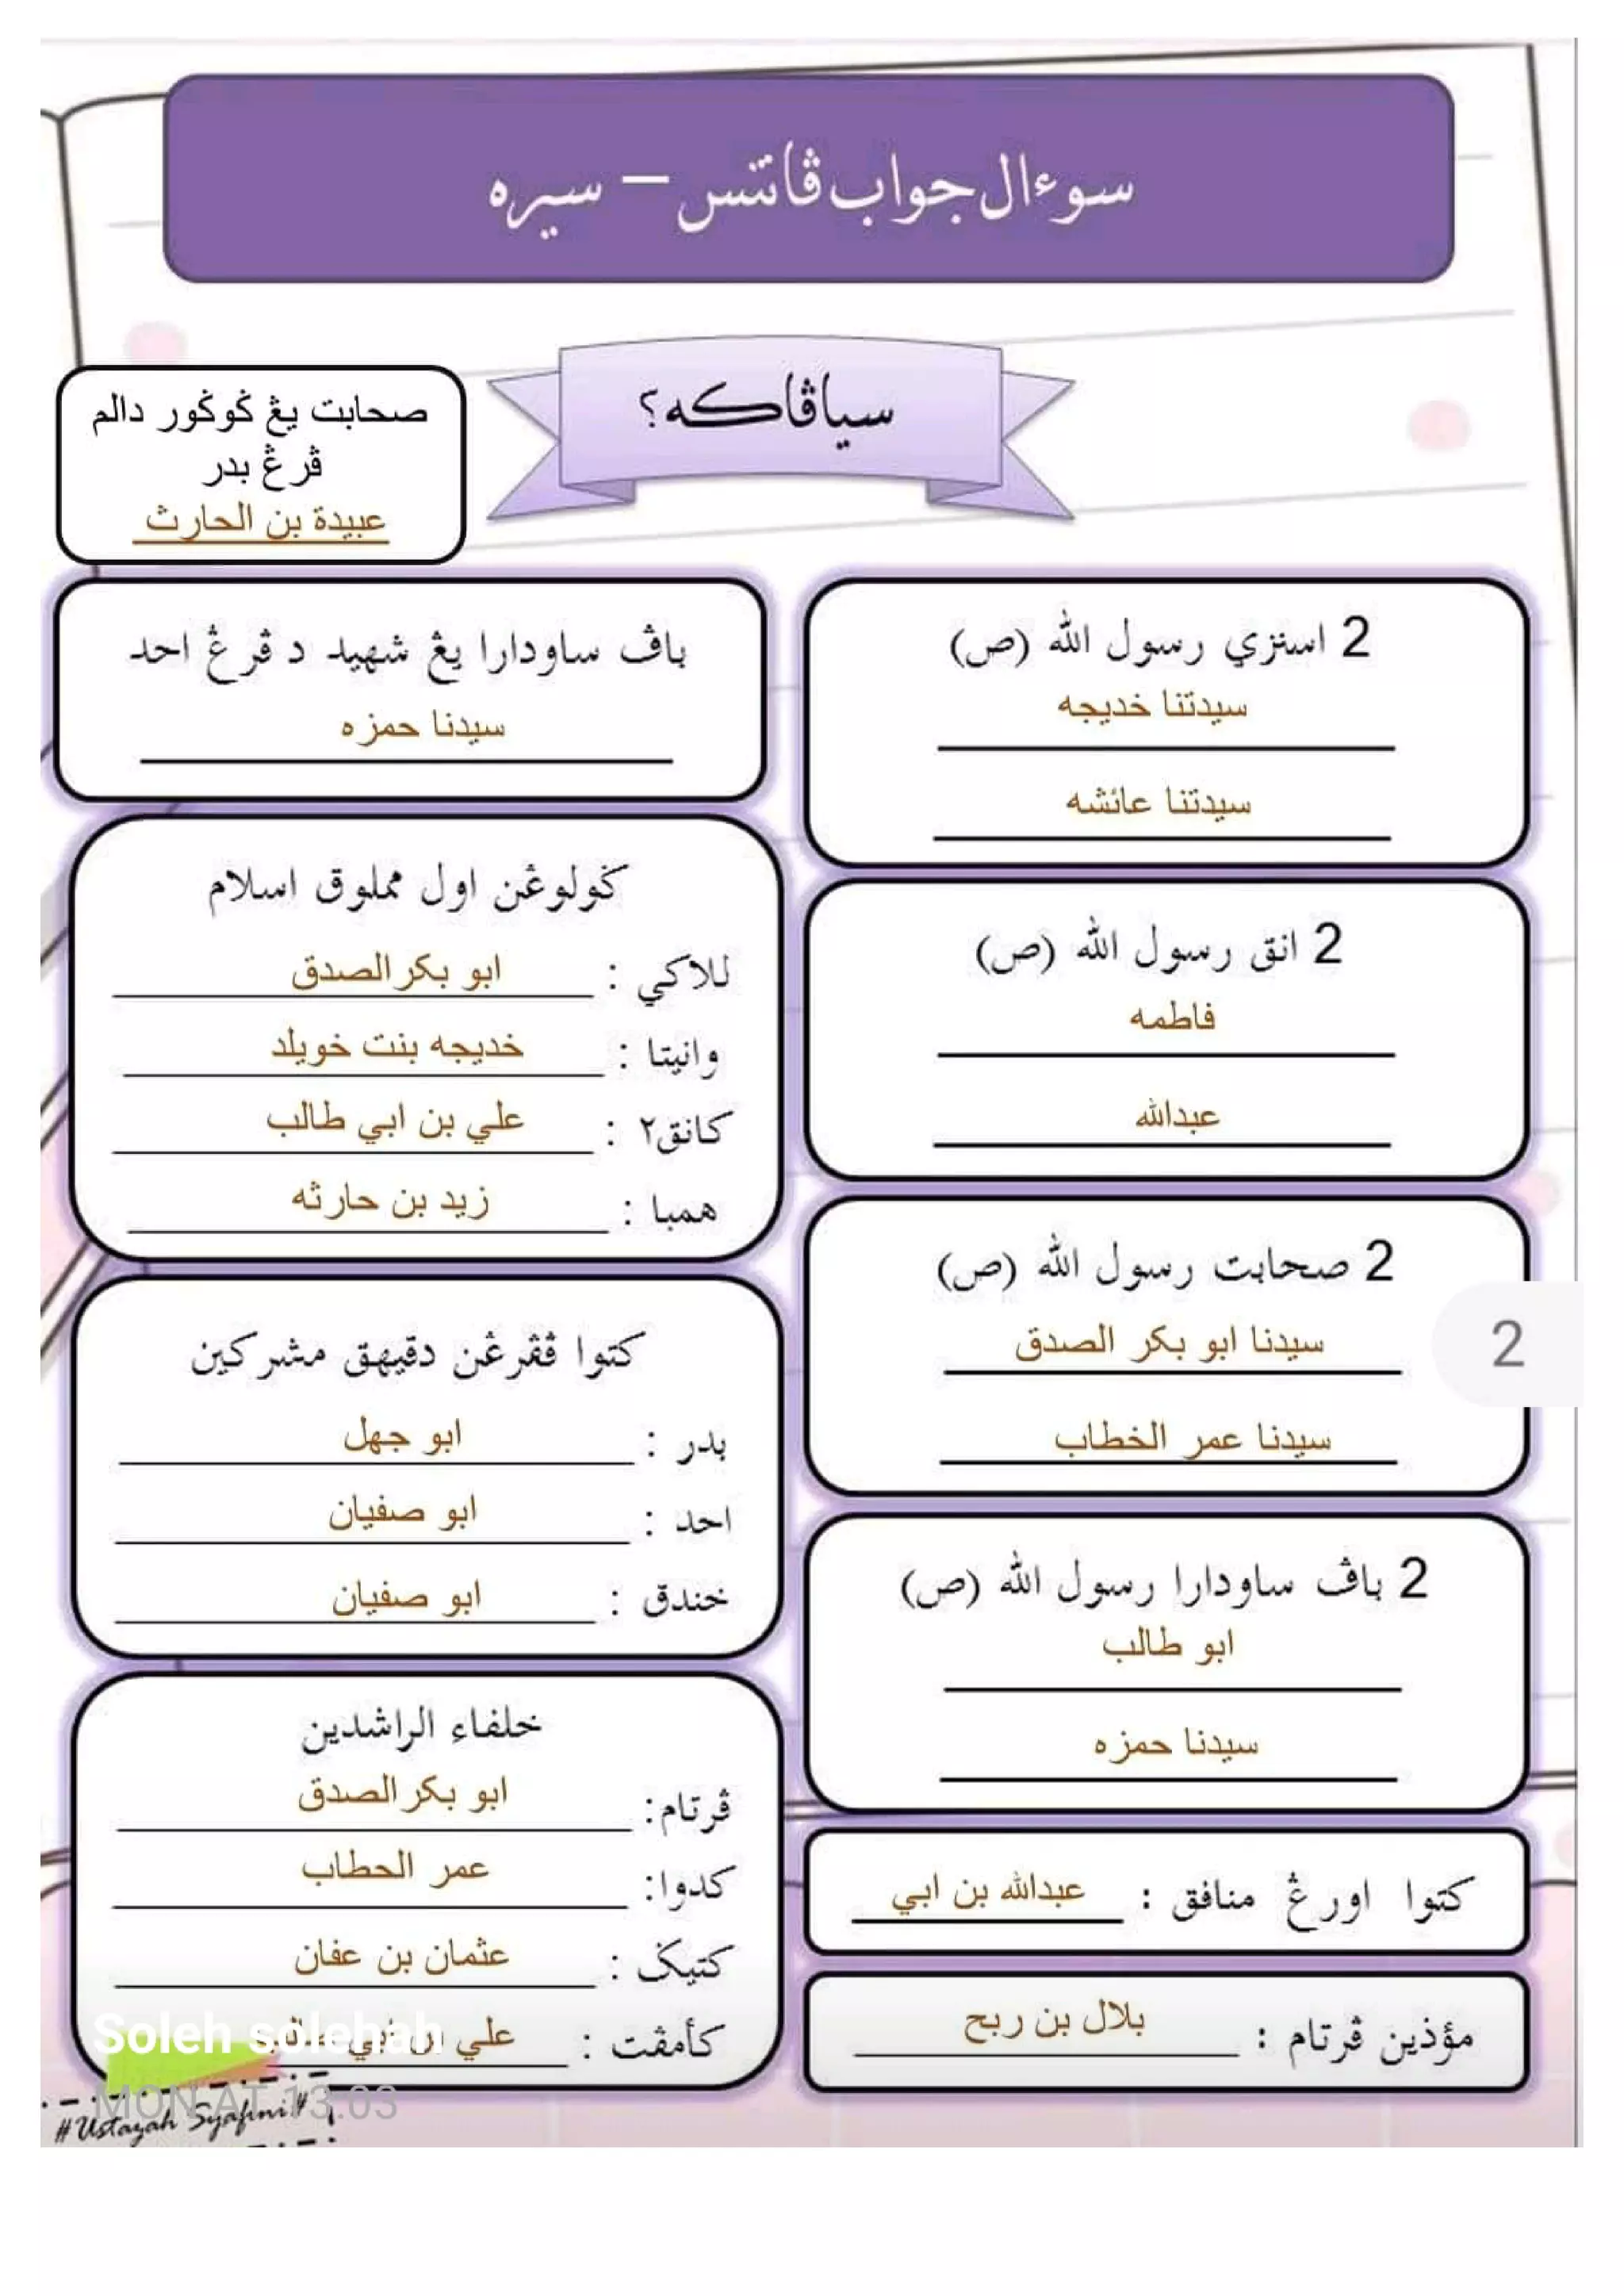 سوءال جواب ڤانتس – سيره
سياڤاكه؟
صحابت يڠ ݢوݢور دالم
ڤرڠ بدر
عبيدة بن الحارث
2 استري رسول الله (ص)
سيدتنا خديجه
سيدتنا عائشه
2 انق رسول الله (ص)
فاطمه
عبدالله
2 صحابت رسول الله (ص)
سيدنا ابو بكر الصدق
سيدنا عمر الخطاب
2
2 باڤ ساودارا رسول الله (ص)
ابو طالب
سيدنا حمزه
كتوا اورڠ منافق : عبدالله بن ابي
مؤذين ڤرتام : بلال بن ربح
باڤ ساودارا يڠ شهيد د ڤرڠ احد
سيدنا حمزه
ݢولوڠن اول مملوق اسلام
للاكي : ابو بكر الصدق
وانيتا : خديجه بنت خويلد
كانق٢ : علي بن ابي طالب
همبا : زيد بن حارثه
كتوا ڤڤرڠن دڤيهق مشركين
بدر : ابو جهل
احد : ابو صفيان
خندق : ابو صفيان
خلفاء الراشدين
ڤرتام: ابو بكر الصدق
كدوا: عمر الحطاب
كتيݢ : عثمان بن عفان
كأمڤت : علي بن ابي طالب
Soleh solehah
MON AT 13.03
#Ustazah Syafini#